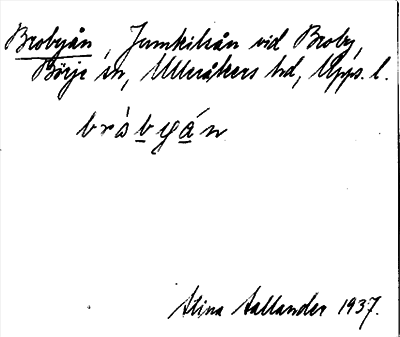 Brobyån, Jumkilsån vid Broby,
Börje sn, Ulleråkers hd, Upps. l.
bròbyán
Stina Aallander 1937.